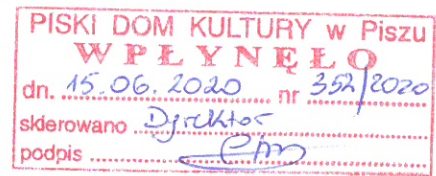 PISKI DOM KULTURY w Piszu
WPŁYNĘŁO
dn. 15.06.2020 nr 352/2020
skierowano Dyrektor
podpis